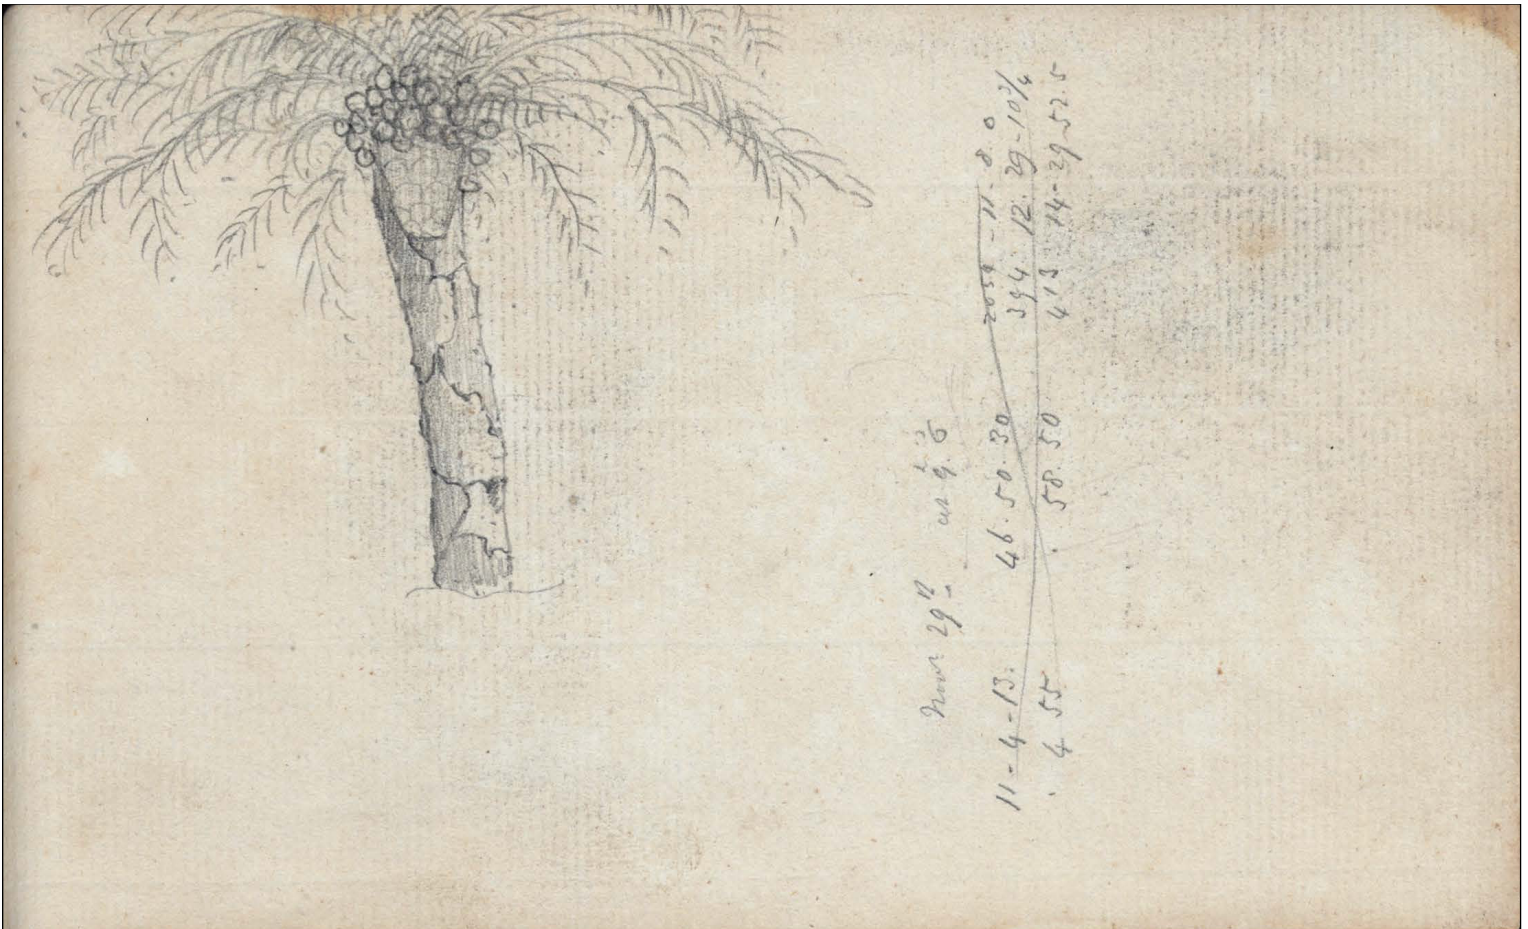 Novr 29th at 9.5
11 - 4 - 13. 46. 50. 30 - 11. 8. 0
394. 12. 29 - 10 3/4
4 55 . 58. 50 413 14 - 29. 52. 5